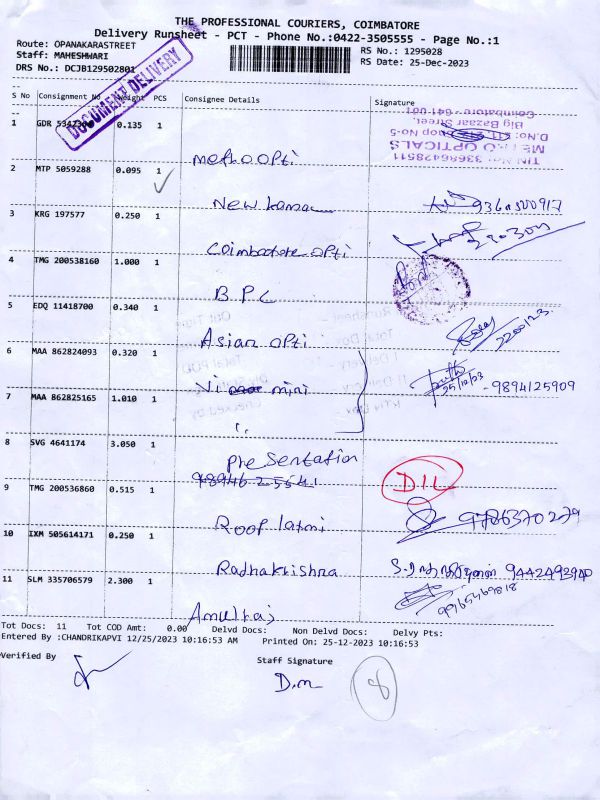 THE PROFESSIONAL COURIERS, COIMBATORE
Delivery Runsheet - PCT - Phone No.:0422-3505555 - Page No.:1
Route: OPANAKARASTREET
RS No.: 1295028
Staff: MAHESHWARI
RS Date: 25-Dec-2023
DRS No.: DCJB129502801
DOCUMENT DELIVERY
S No Consignment No Weight PCS Consignee Details Signature
1 GDR 0.135 1 metro opti
TIN No: 33686428511
METRO OPTICALS
Big Bazaar Street,
Coimbatore - 641 001
2 MTP 5059288 0.095 1 New
3 KRG 197577 0.250 1 Coimbatore opti
4 TMG 200538160 1.000 1 B.P.C
5 EDQ 11418700 0.340 1 Asian opti
6 MAA 862824093 0.320 1 mini
25/12/23 - 9894125909
7 MAA 862825165 1.010 1 "
8 SVG 4641174 3.050 1 presentation
D11
9 TMG 200536860 0.515 1 Roop laxmi 9786370279
10 IXM 505614171 0.250 1 Radhakrishna
11 SLM 335706579 2.300 1 Amulraj
Tot Docs: 11 Tot COD Amt: 0.00 Delvd Docs: Non Delvd Docs: Delvy Pts:
Entered By :CHANDRIKAPVI 12/25/2023 10:16:53 AM Printed On: 25-12-2023 10:16:53
Verified By Staff Signature
D.m
8